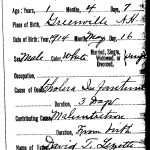 Age: Years, 1 Months, 4 Days, 7
Place of Birth, Greenville N.H.
Date of Birth: Year, 1914 Month, May Day, 16
Sex, Male Color, White Married, Single, Widowed, or Divorced,
Occupation,
Cause of Death, Cholera Infantum
Duration, 3 Days
Contributing Cause, Malnutrition
Duration, From birth
Name of Father,
David T.